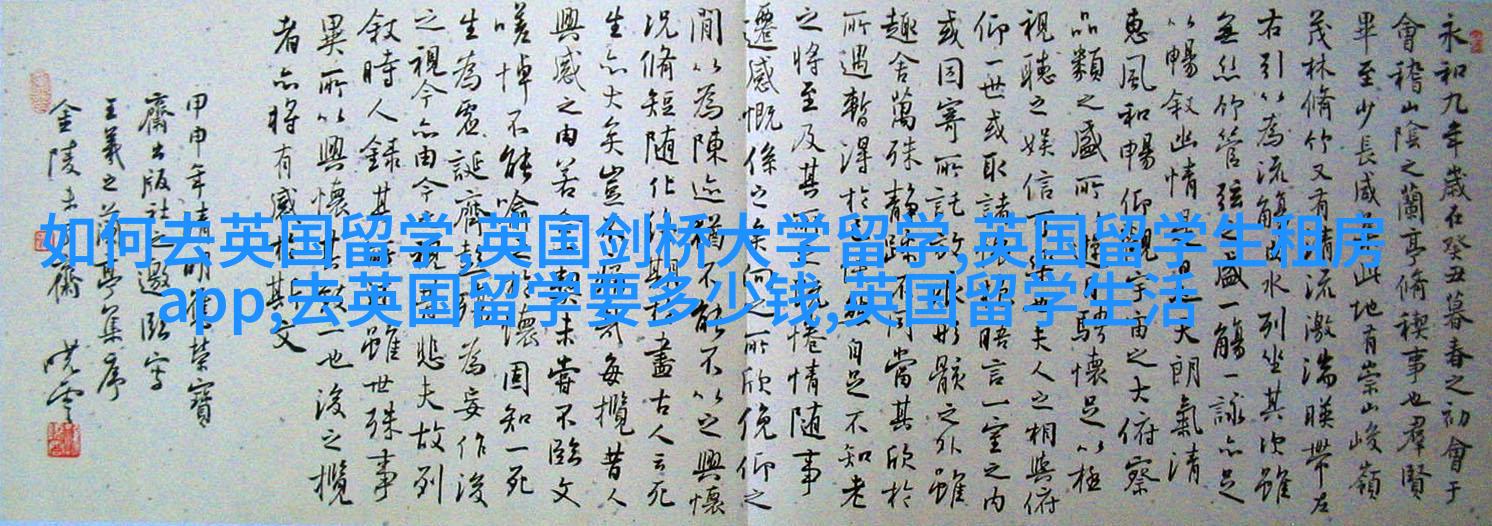 永和九年歲在癸丑暮春之初會于
會稽山陰之蘭亭脩禊事也群賢
畢至少長咸集此地有崇山峻嶺
茂林脩竹又有清流激湍暎帶左
右引以為流觴曲水列坐其次雖
無絲竹管弦之盛一觴一詠亦足
以暢敘幽情是日也天朗氣清
惠風和暢仰觀宇宙之大俯察
品類之盛所以遊目騁懷足以極
視聽之娛信可樂也夫人之相與俯
仰一世或取諸懷抱悟言一室之内
或因寄所託放浪形骸之外雖
趣舍萬殊靜躁不同當其欣於
所遇暫得於己快然自足不知老
之將至及其所之既惓情隨事
遷感慨係之矣向之所欣俛仰之
間以為陳迹猶不能不以之興懷
況脩短隨化終期於盡古人云死
生亦大矣豈不痛哉每攬昔人
興感之由若合一契未嘗不臨文
嗟悼不能喻之於懷固知一死
生為虛誕齊彭殤為妄作後
之視今亦由今之視昔悲夫故列
敘時人錄其所述雖世殊事
異所以興懷其致一也後之攬
者亦將有感於斯文
甲申年清明集榮寶
齋出版社之邀臨寫
王羲之蘭亭集序
金陵
如何去英国留学,英国剑桥大学留学,英国留学生租房
app,去英国留学要多少钱,英国留学生活